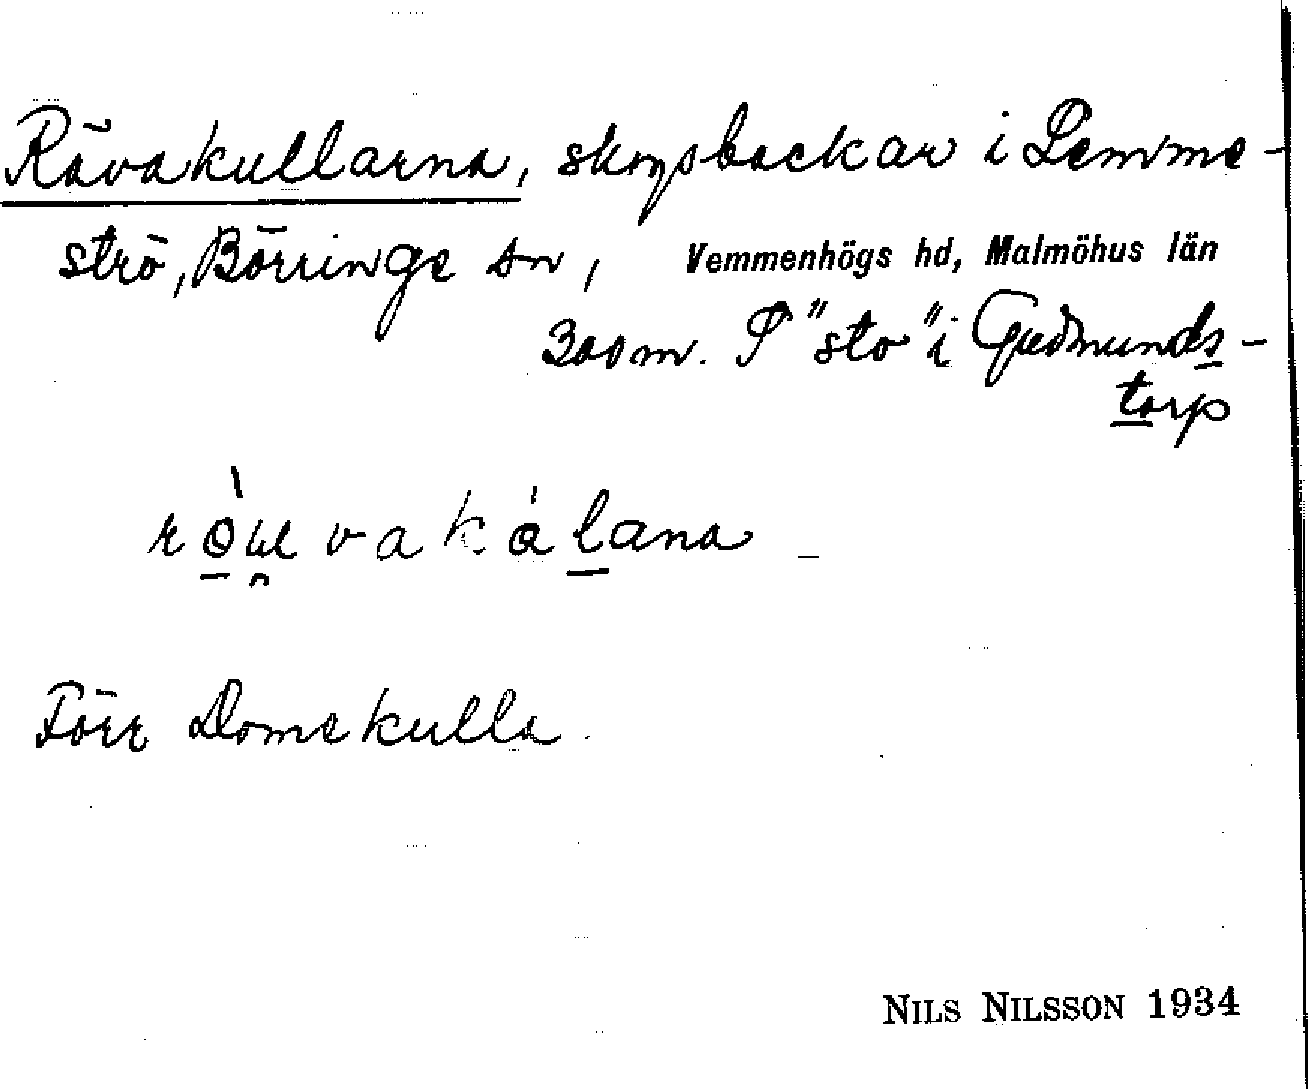 Rävakullarna, skogsbackar i Lemme-
strö, Börringe sn, Vemmenhögs hd, Malmöhus län
300 m. S "sto" i Gudmunds-
torp
Förr Domekulla.
NILS NILSSON 1934